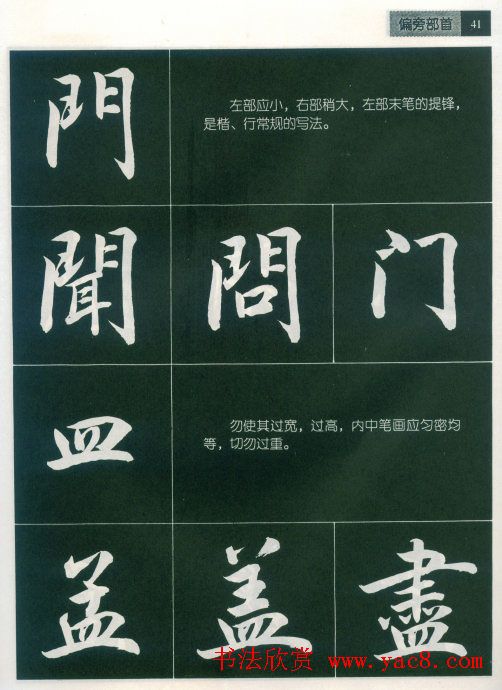 偏旁部首 41
門
左部应小，右部稍大，左部末笔的提锋，
是楷、行常规的写法。
聞 問 门
皿
勿使其过宽，过高，内中笔画应匀密均
等，切勿过重。
孟 盖 盡
书法欣赏 www.yac8.com